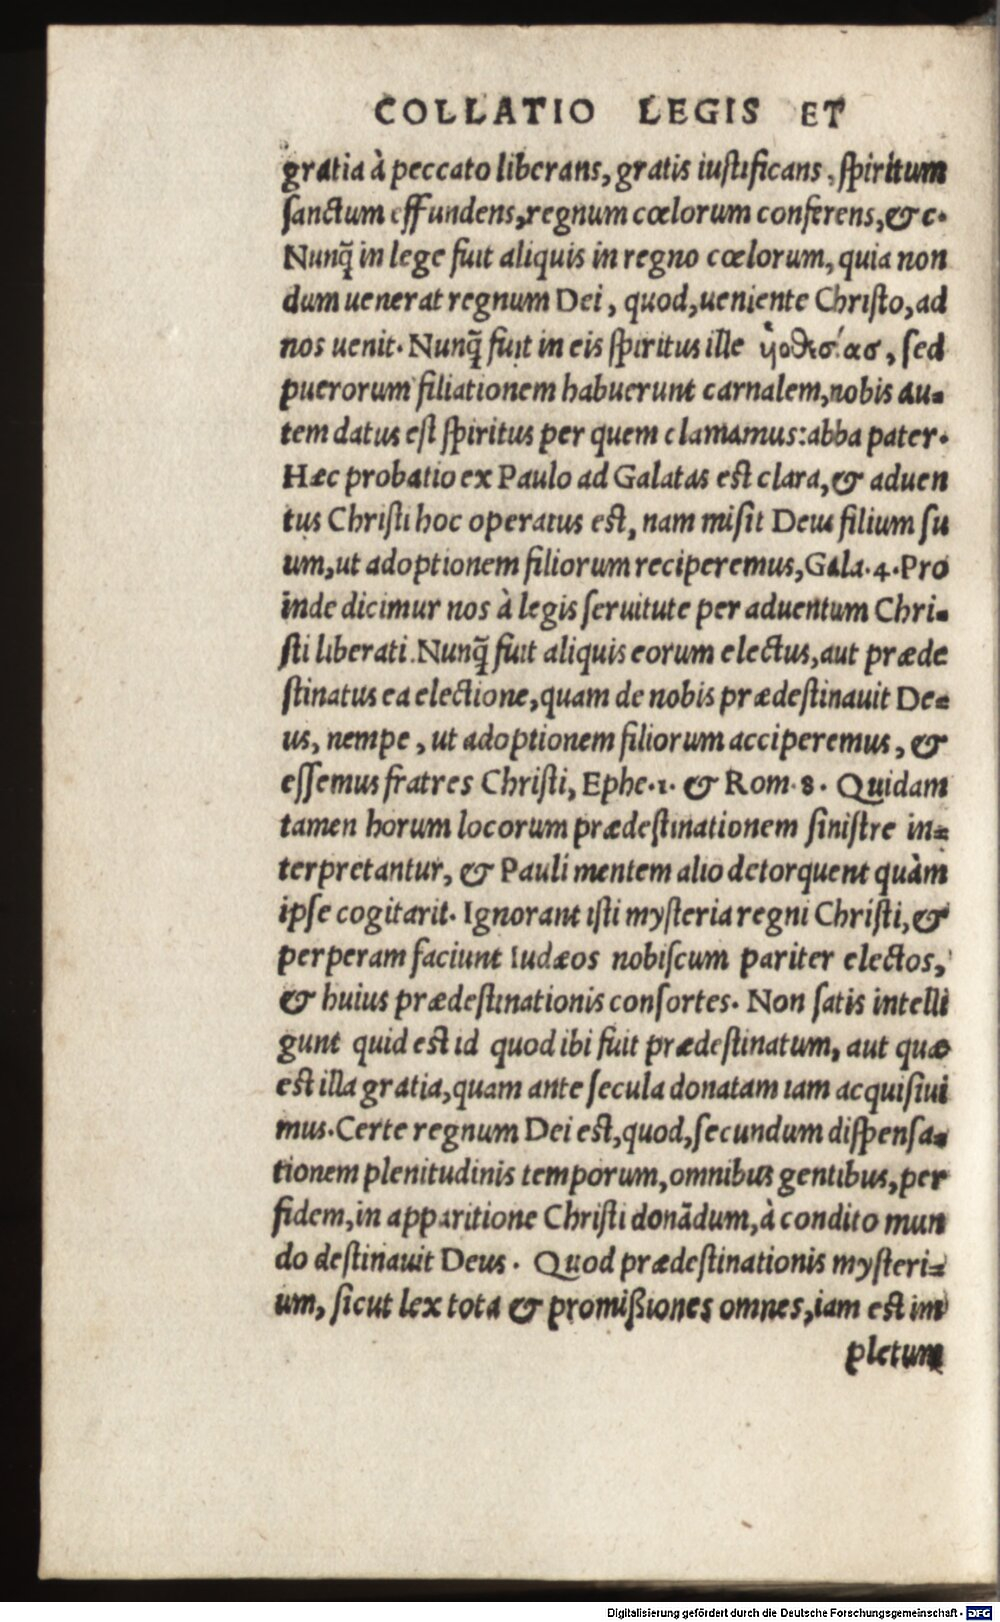 COLLATIO LEGIS ET
gratia à peccato liberans, gratis iustificans, spiritum
sanctum effundens, regnum cœlorum conferens, & c.
Nunq̃ in lege fuit aliquis in regno cœlorum, quia non
dum uenerat regnum Dei, quod, ueniente Christo, ad
nos uenit. Nunq̃ fuit in eis spiritus ille , sed
puerorum filiationem habuerunt carnalem, nobis au-
tem datus est spiritus per quem clamamus: abba pater.
Hæc probatio ex Paulo ad Galatas est clara, & aduen
tus Christi hoc operatus est, nam misit Deus filium su
um, ut adoptionem filiorum reciperemus, Gala. 4. Pro
inde dicimur nos à legis seruitute per aduentum Chri-
sti liberati. Nunq̃ fuit aliquis eorum electus, aut præde
stinatus ea electione, quam de nobis prædestinauit De-
us, nempe, ut adoptionem filiorum acciperemus, &
essemus fratres Christi, Ephe. 1. & Rom. 8. Quidam
tamen horum locorum prædestinationem sinistre in-
terpretantur, & Pauli mentem alio detorquent quàm
ipse cogitarit. Ignorant isti mysteria regni Christi, &
perperam faciunt Iudæos nobiscum pariter electos,
& huius prædestinationis consortes. Non satis intelli
gunt quid est id quod ibi fuit prædestinatum, aut quæ
est illa gratia, quam ante secula donatam iam acquisiui
mus. Certe regnum Dei est, quod, secundum dispensa-
tionem plenitudinis temporum, omnibus gentibus, per
fidem, in apparitione Christi donãdum, à condito mun
do destinauit Deus. Quod prædestinationis mysteri-
um, sicut lex tota & promißiones omnes, iam est im
pletum
Digitalisierung gefördert durch die Deutsche Forschungsgemeinschaft - DFG